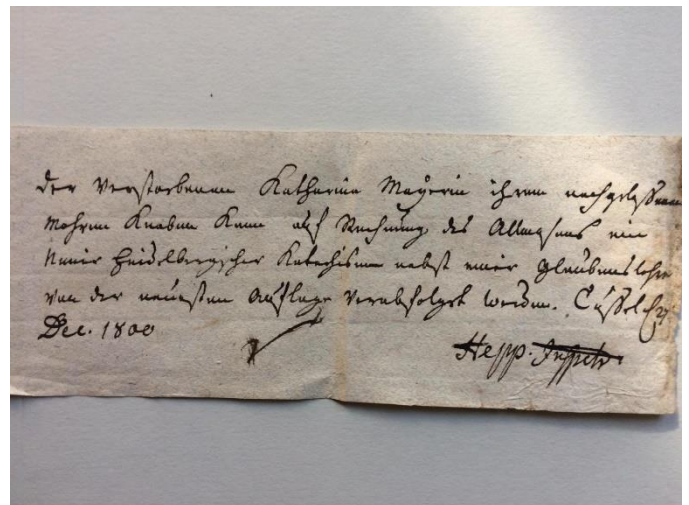 Der Verstorbenen Katharina Mayerin ihrem nachgelassenen
Mohren Knaben kann auf Rechnung des Allmosens ein
Heidelbergischer Katechismus nebst einer Glaubenslehre
von der neuesten Auflage verabfolget werden. Cassel
Dec. 1800
Hepp. Inspctr.